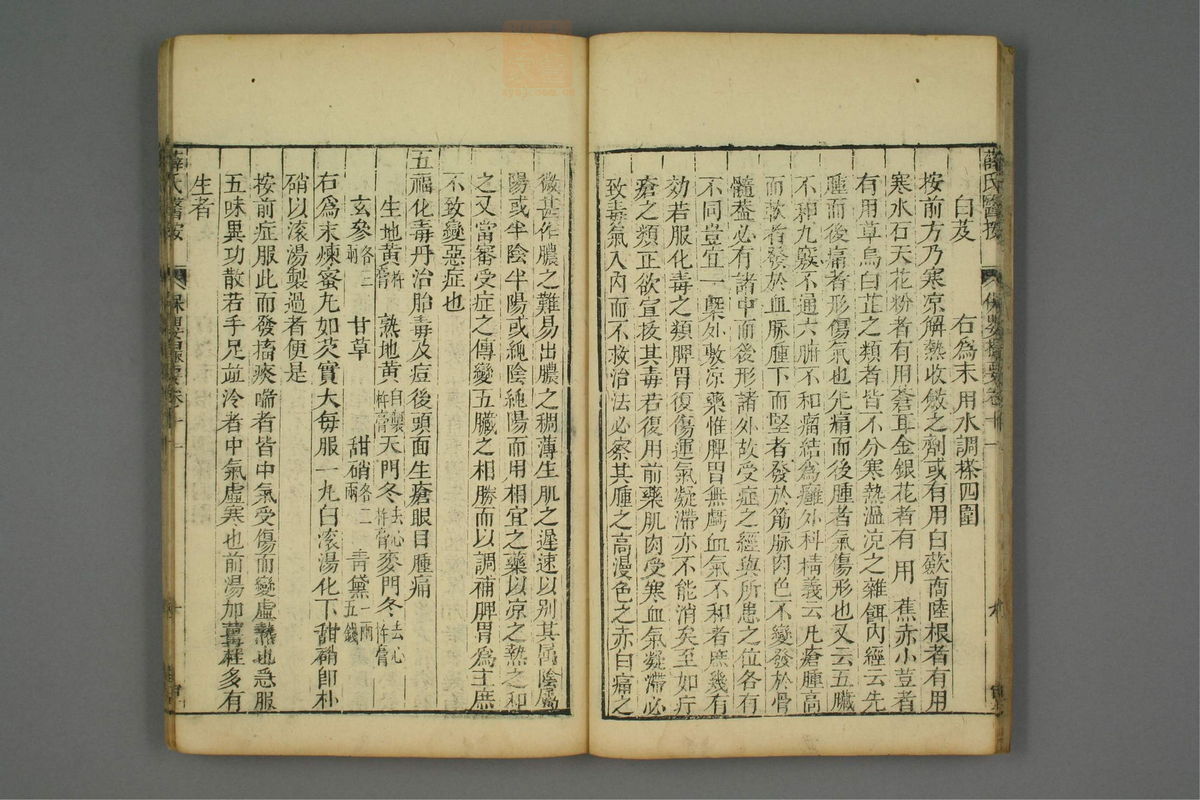 薛氏醫按
保嬰撮要卷十一
白芨　右爲末用水調搽四圍
按前方乃寒凉解熱收斂之劑或有用白蘞啇陸根者有用
寒水石天花粉者有用蒼耳金銀花者有用蕉赤小荳者
有用草烏白芷之類者皆不分寒熱溫凉之雜餌內經云先
腫而後痛者形傷氣也先痛而後腫者氣傷形也又云五臟
不和九竅不通六腑不和瘤結爲癰外科精義云凡瘡腫高
而軟者發於血脉腫下而堅者發於筋脉肉色不變發於骨
髓蓋必有諸中而後形諸外故受症之經與所患之位各有
不同豈宜一槩外敷凉藥惟脾胃無虧血氣不和者庶幾有
効若服化毒之類脾胃復傷運氣凝滯亦不能消矣至如疔
瘡之類正欲宣拔其毒若復用前藥肌肉受寒血氣凝滯必
致毒氣入內而不救治法必察其腫之高漫色之赤白痛之
微甚作膿之難易出膿之稠薄生肌之遲速以別其屬陰屬
陽或半陰半陽或純陰純陽而用相宜之藥以凉之熱之和
之又當審受症之傳變五臟之相勝而以調補脾胃爲主庶
不致變惡症也
五福化毒丹治胎毒及痘後頭面生瘡眼目腫痛
生地黃杵膏　熟地黃自製杵膏　天門冬去心杵膏　麥門冬去心杵膏
玄參各三兩　甘草　甜硝各二兩　青黛一兩五錢
右爲末煉蜜丸如芡實大每服一丸白滾湯化下甜硝卽朴
硝以滾湯製過者便是
按前症服此而發搐痰喘者皆中氣受傷而變虛熱也急服
五味異功散若手足並冷者中氣虛寒也前湯加薑桂多有
生者
薛氏醫按
保嬰撮要卷十一